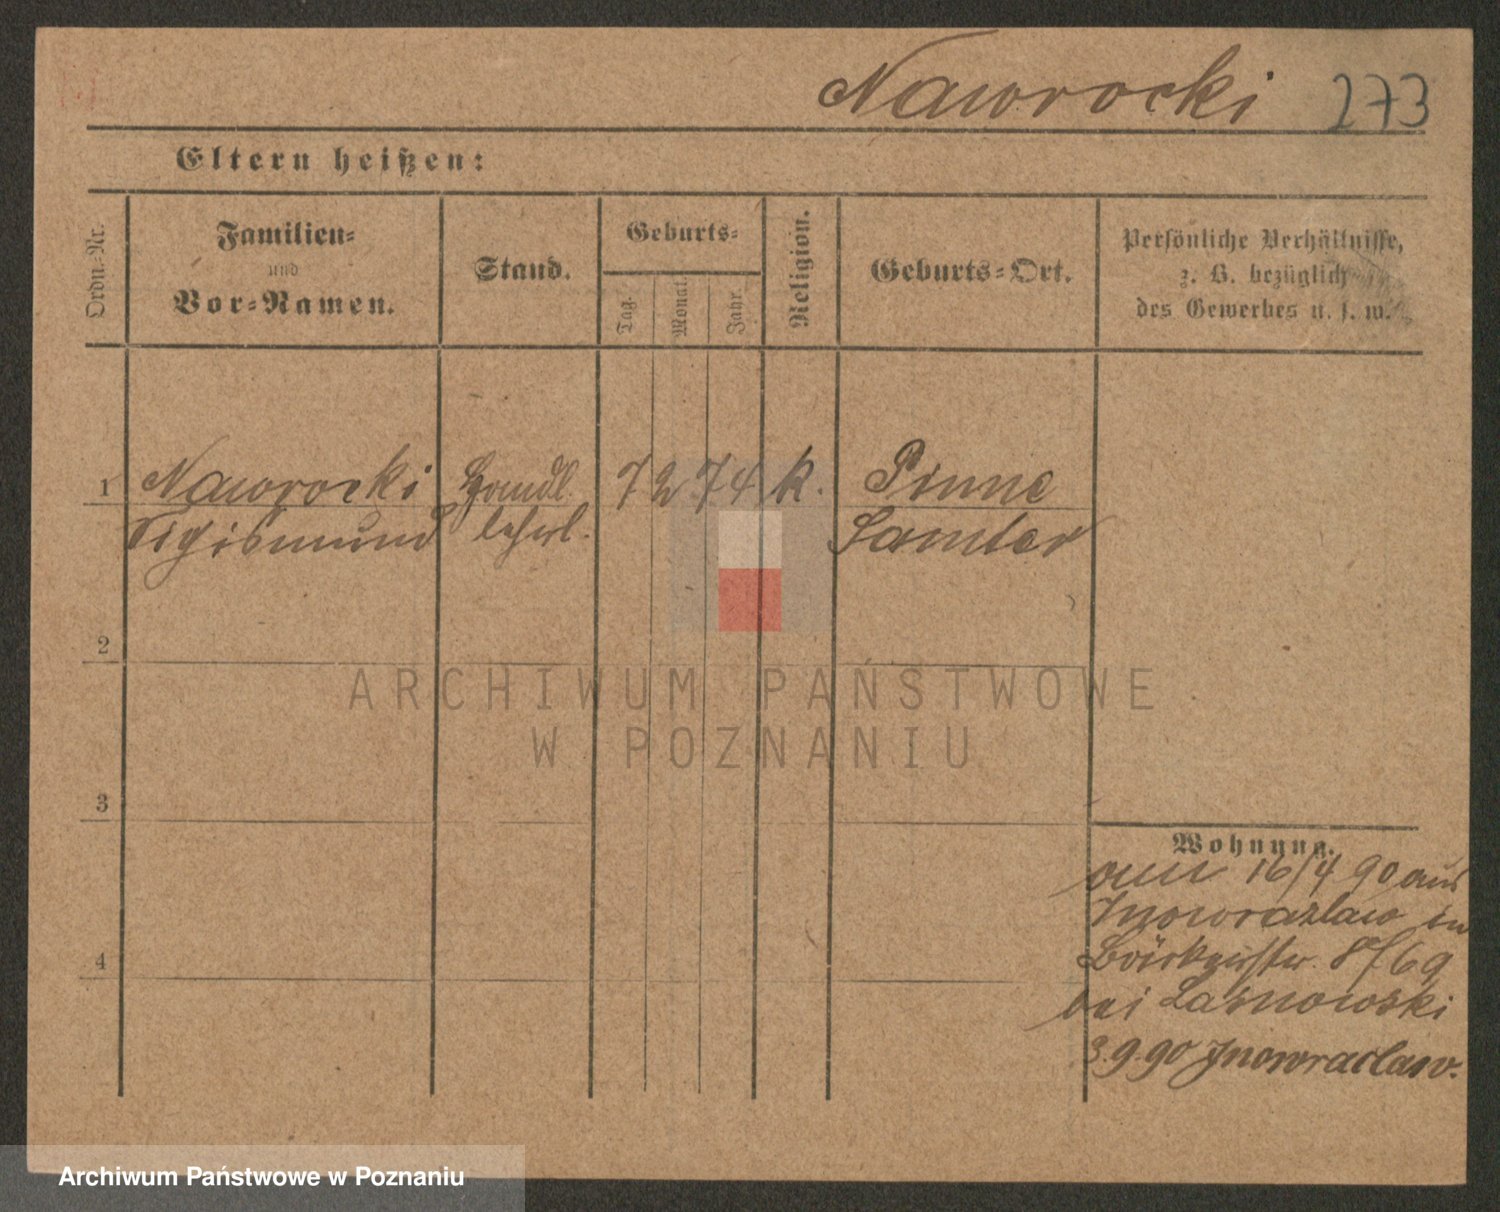 Naworocki 273
Eltern heißen:
Ordn.-Nr.
Familien-
und
Vor-Namen.
Stand.
Geburts-
Tag.
Monat.
Jahr.
Religion.
Geburts-Ort.
Persönliche Verhältnisse,
z. B. bezüglich
des Gewerbes u. s. w.
1 Naworocki Handl. 7 2 74 k. Pinne
Sigismund lehrl. Samter
2
3
4
Wohnung.
am 16/4 90 aus
Inowrazlaw in
8/69
bei Lasnowski
3.9.90 Inowraclaw.
ARCHIWUM PAŃSTWOWE
W POZNANIU
Archiwum Państwowe w Poznaniu